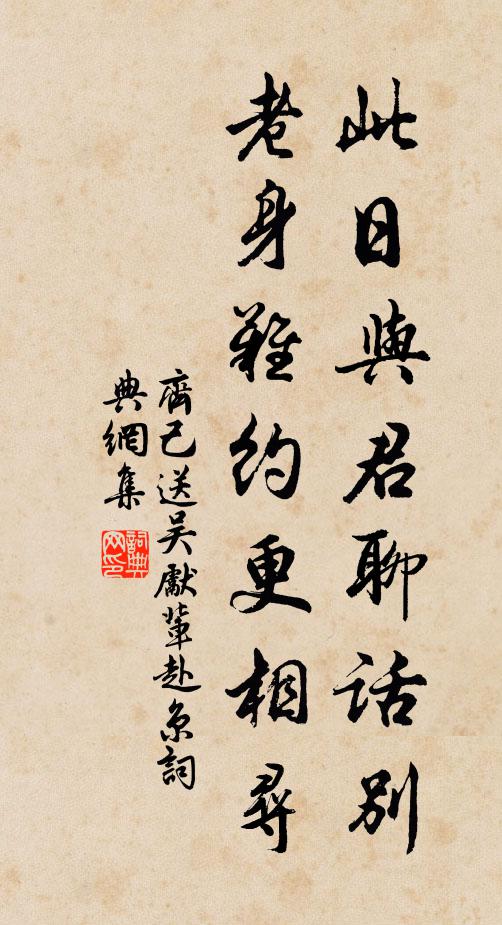 此日與君聊話別
老身難約更相尋
齊己送吴獻輩赴京詞
典網集
詞典网印